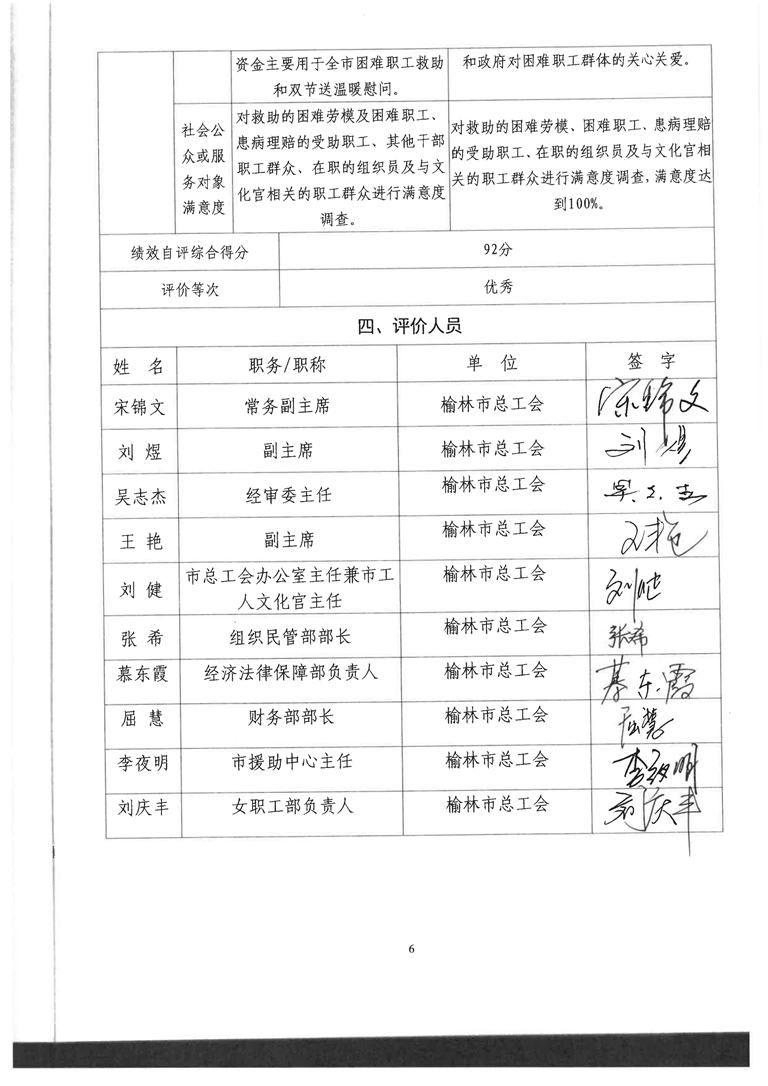 资金主要用于全市困难职工救助
和双节送温暖慰问。
和政府对困难职工群体的关心关爱。
社会公
众或服
务对象
满意度
对救助的困难劳模及困难职工、
患病理赔的受助职工、其他干部
职工群众、在职的组织员及与文
化宫相关的职工群众进行满意度
调查。
对救助的困难劳模、困难职工、患病理赔
的受助职工、在职的组织员及与文化宫相
关的职工群众进行满意度调查，满意度达
到100%。
绩效自评综合得分 92分
评价等次 优秀
四、评价人员
姓 名 职务/职称 单 位 签 字
宋锦文 常务副主席 榆林市总工会 宋锦文
刘 煜 副主席 榆林市总工会 刘煜
吴志杰 经审委主任 榆林市总工会 吴志杰
王 艳 副主席 榆林市总工会 王艳
刘 健 市总工会办公室主任兼市工
人文化宫主任 榆林市总工会 刘健
张 希 组织民管部部长 榆林市总工会 张希
慕东霞 经济法律保障部负责人 榆林市总工会 慕东霞
屈 慧 财务部部长 榆林市总工会 屈慧
李夜明 市援助中心主任 榆林市总工会 李夜明
刘庆丰 女职工部负责人 榆林市总工会 刘庆丰
6